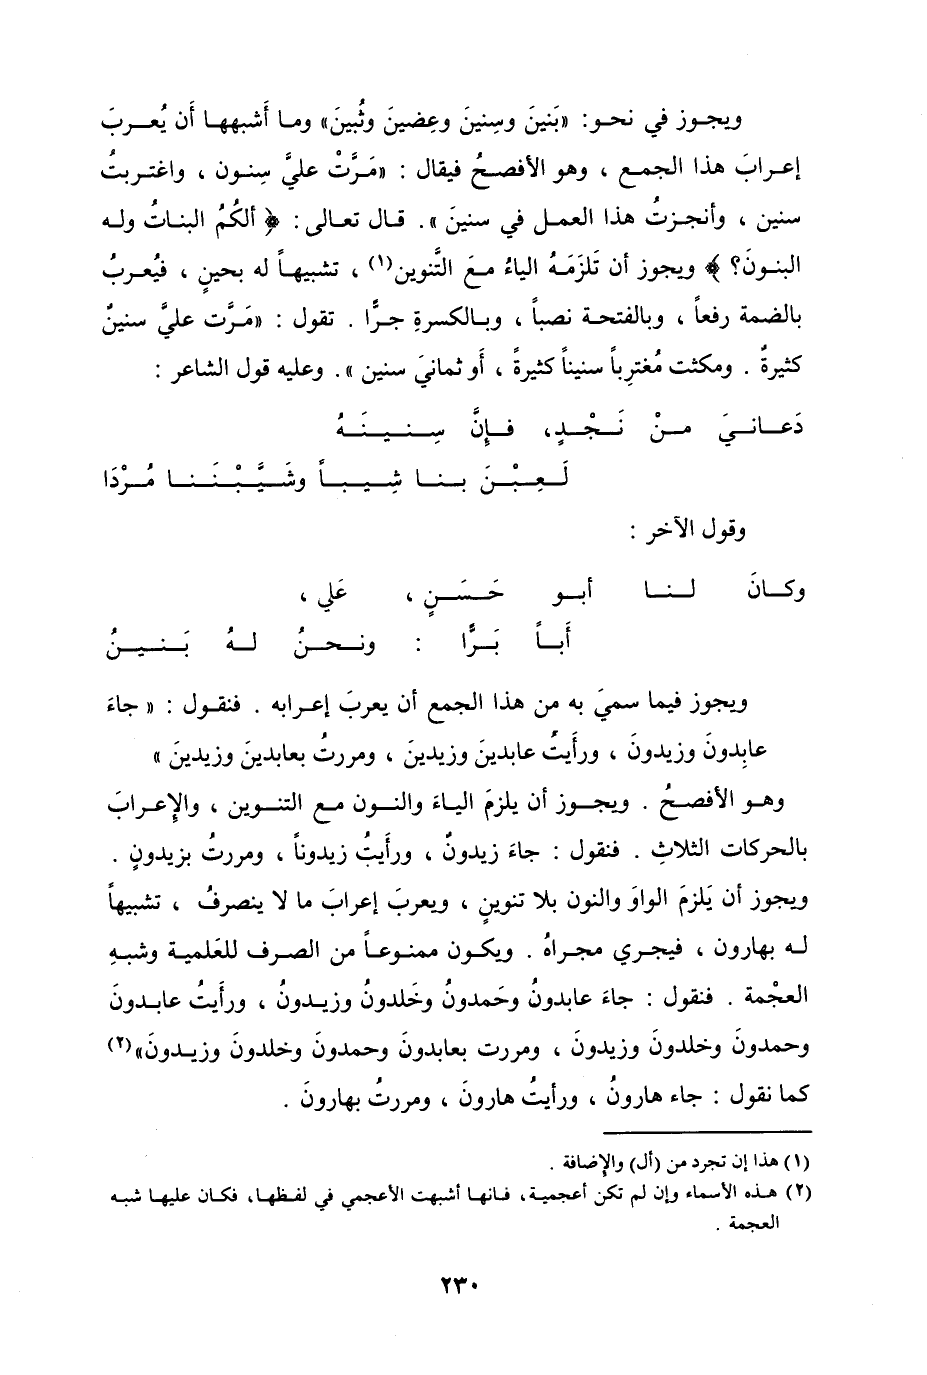 ويجوز في نحو: «بَنينَ وسِنينَ وعِضينَ وثُبينَ» وما أَشبهها أَن يُعربَ
إعرابَ هذا الجمع ، وهو الأفصحُ فيقال : «مَرَّتْ عليَّ سِنون ، واغتربتُ
سنين ، وأنجزتُ هذا العمل في سنينَ ». قال تعالى : ﴿ ألكُمُ البناتُ وله
البنونَ؟ ﴾ ويجوز أن تَلزَمَهُ الياءُ معَ التَّنوين(١) ، تشبيهاً له بحينٍ ، فيُعربُ
بالضمة رفعاً ، وبالفتحة نصباً ، وبالكسرةِ جرًّا . تقول : «مَرَّت عليَّ سنينٌ
كثيرةٌ . ومكثت مُغترِباً سنيناً كثيرةً ، أَو ثمانيَ سنين ». وعليه قول الشاعر :
دَعانيَ منْ نَجْدٍ، فإنَّ سِنينَهُ
لَعِبْنَ بنا شِيباً وشَيَّبْنَنا مُرْدَا
وقول الآخر :
وكانَ لنا أبو حَسَنٍ ، عَلي ،
أَباً بَرًّا : ونحنُ لهُ بَنينُ
ويجوز فيما سميَ به من هذا الجمع أن يعربَ إعرابه . فنقول : « جاءَ
عابِدونَ وزيدونَ ، ورأَيتُ عابدينَ وزيدينَ ، ومررتُ بعابدينَ وزيدينَ »
وهو الأفصحُ . ويجوز أن يلزمَ الياءَ والنون مع التنوين ، والإعرابَ
بالحركات الثلاثِ . فنقول : جاءَ زيدونٌ ، ورأَيتُ زيدوناً ، ومررتُ بزيدونٍ .
ويجوز أن يَلزمَ الواوَ والنون بلا تنوينٍ ، ويعربَ إعرابَ ما لا ينصرفُ ، تشبيهاً
له بهارون ، فيجري مجراهُ . ويكون ممنوعاً من الصرف للعَلمية وشبهِ
العجْمة . فنقول : جاءَ عابدونُ وحَمدونُ وخَلدونُ وزيدونُ ، ورأَيتُ عابدونَ
وحمدونَ وخلدونَ وزيدونَ ، ومررت بعابدونَ وحمدونَ وخلدونَ وزيدونَ»(٢)
كما نقول : جاء هارونُ ، ورأَيتُ هارونَ ، ومررتُ بهارونَ .
(١) هذا إن تجرد من (أل) والإضافة .
(٢) هذه الأسماء وإن لم تكن أعجمية، فانها أشبهت الأعجمي في لفظها، فكان عليها شبه
العجمة .
٢٣٠